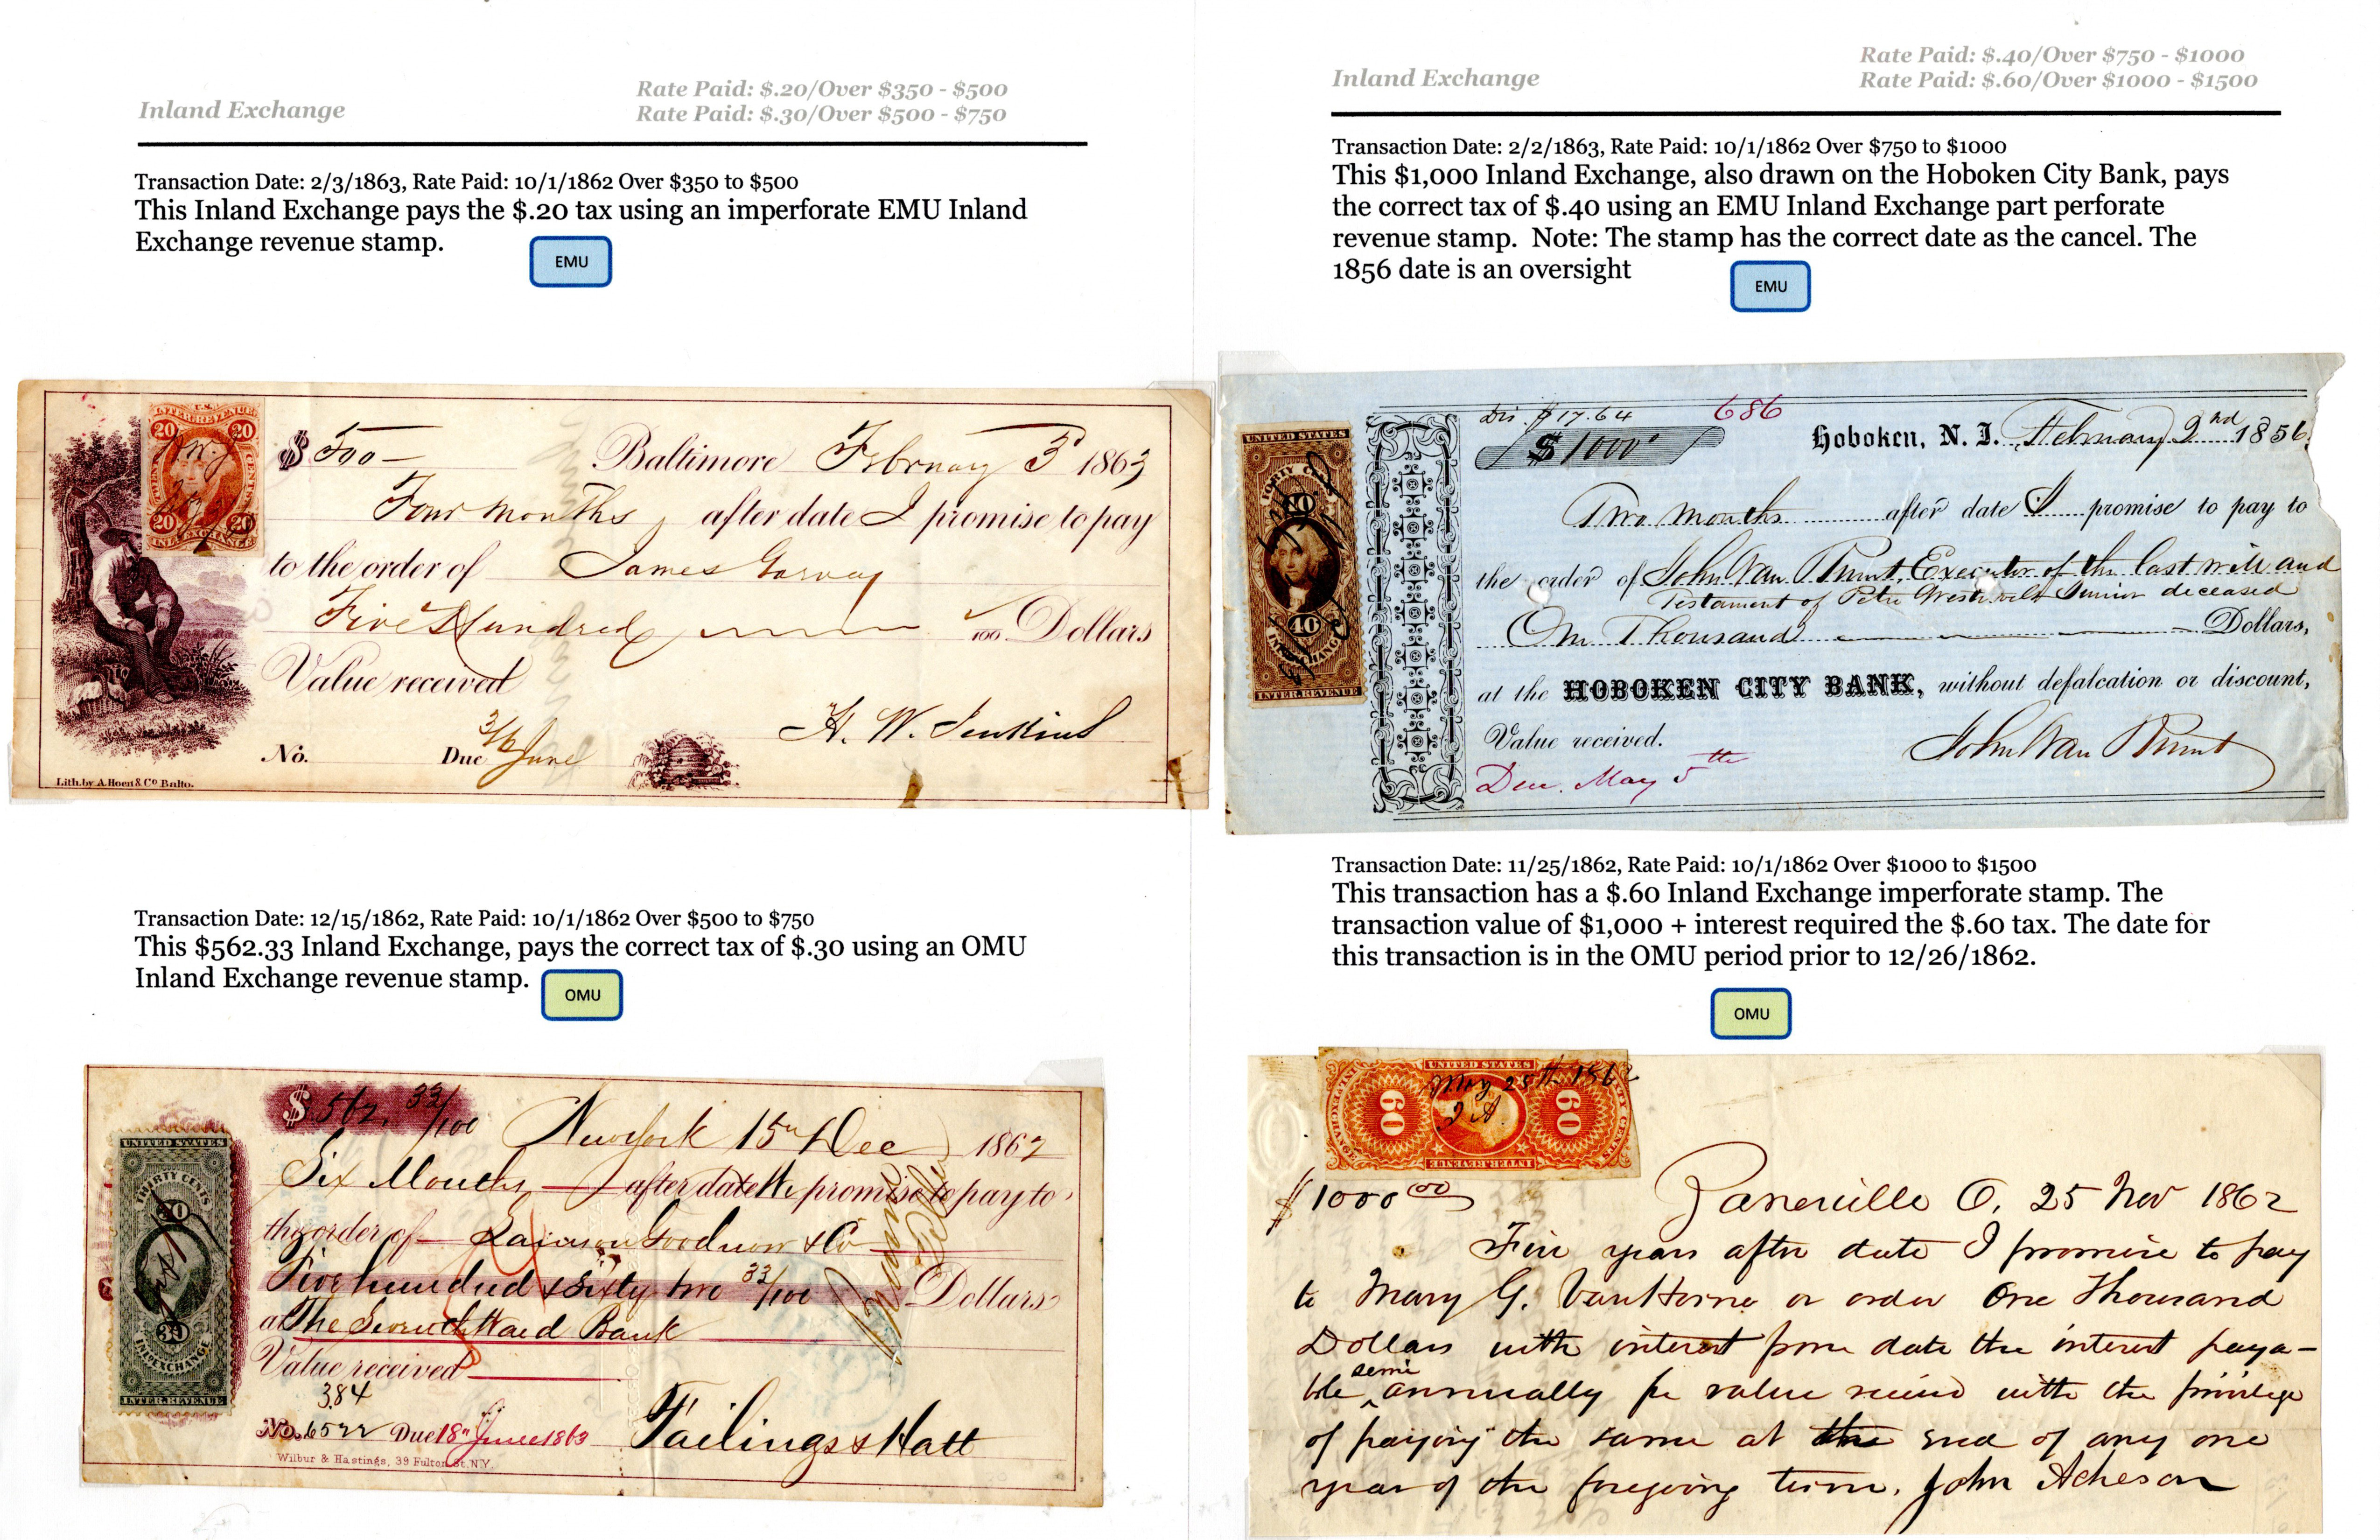 Inland Exchange
Rate Paid: $.20/Over $350 - $500
Rate Paid: $.30/Over $500 - $750
Transaction Date: 2/3/1863, Rate Paid: 10/1/1862 Over $350 to $500
This Inland Exchange pays the $.20 tax using an imperforate EMU Inland
Exchange revenue stamp.
EMU
U.S.
INTER. REVENUE
20 20
20 20
INL. EXCHANGE
$ 500 —
Baltimore February 3 1863
Four Months after date I promise to pay
to the order of James Garvey
Five Hundred /100 Dollars
Value received
H. W. Jenkins
No. Due 3/6 June
Lith. by A. Hoen & Co. Balto.
Transaction Date: 12/15/1862, Rate Paid: 10/1/1862 Over $500 to $750
This $562.33 Inland Exchange, pays the correct tax of $.30 using an OMU
Inland Exchange revenue stamp.
OMU
UNITED STATES
THIRTY CENTS
30
30
INL. EXCHANGE
INTER. REVENUE
$ 562. 33/100
New York 15th Dec 1862
Six Months after date We promise to pay to
the order of Lamson Goodnow & Co
Five hundred & Sixty two 33/100 Dollars
at The Seventh Ward Bank
Value received
384
No. 6522 Due 18th June 1863
Tailings & Hatt
Wilbur & Hastings, 39 Fulton St. N.Y.
Inland Exchange
Rate Paid: $.40/Over $750 - $1000
Rate Paid: $.60/Over $1000 - $1500
Transaction Date: 2/2/1863, Rate Paid: 10/1/1862 Over $750 to $1000
This $1,000 Inland Exchange, also drawn on the Hoboken City Bank, pays
the correct tax of $.40 using an EMU Inland Exchange part perforate
revenue stamp. Note: The stamp has the correct date as the cancel. The
1856 date is an oversight
EMU
UNITED STATES
FORTY CENTS
40
40
INL. EXCHANGE
INTER. REVENUE
Dis. $17.64 686
$1000
Hoboken, N. J. February 2nd 1856
Two Months after date I promise to pay to
the order of John Van Brunt, Executor of the last will and
Testament of Peter Westervelt Junior deceased
One Thousand Dollars,
at the HOBOKEN CITY BANK, without defalcation or discount,
Value received.
John Van Brunt
Due. May 5th
Transaction Date: 11/25/1862, Rate Paid: 10/1/1862 Over $1000 to $1500
This transaction has a $.60 Inland Exchange imperforate stamp. The
transaction value of $1,000 + interest required the $.60 tax. The date for
this transaction is in the OMU period prior to 12/26/1862.
OMU
UNITED STATES
60 60
INTER. REVENUE
25th 1862
J A
$1000 00
Zanesville O. 25 Nov 1862
Five years after date I promise to pay
to Mary G. VanHorne or order One Thousand
Dollars with interest from date the interest paya-
ble semi annually for value recived with the privilege
of paying the same at the end of any one
year of the foregoing term. John Acheson